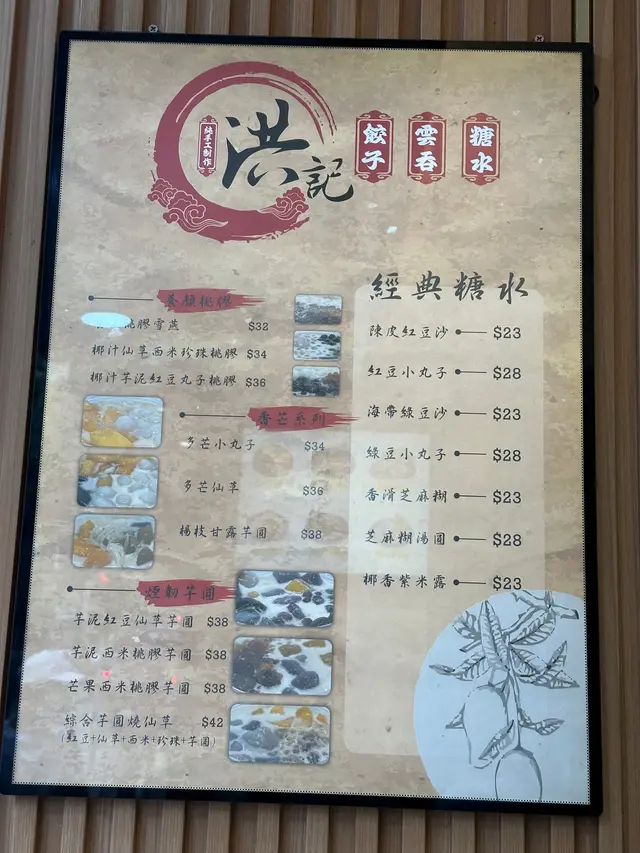 純手工制作
洪記
餃子 雲吞 糖水
養顏桃膠
桃膠雪燕 $32
椰汁仙草西米珍珠桃膠 $34
椰汁芋泥紅豆丸子桃膠 $36
香芒系列
多芒小丸子 $34
多芒仙草 $36
楊枝甘露芋圓 $38
煙韌芋圓
芋泥紅豆仙草芋圓 $38
芋泥西米桃膠芋圓 $38
芒果西米桃膠芋圓 $38
綜合芋圓燒仙草 $42
(紅豆+仙草+西米+珍珠+芋圓)
經典糖水
陳皮紅豆沙 $23
紅豆小丸子 $28
海帶綠豆沙 $23
綠豆小丸子 $28
香滑芝麻糊 $23
芝麻糊湯圓 $28
椰香紫米露 $23